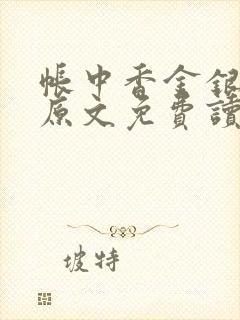 帳中香金銀
原文免費讀
坡特